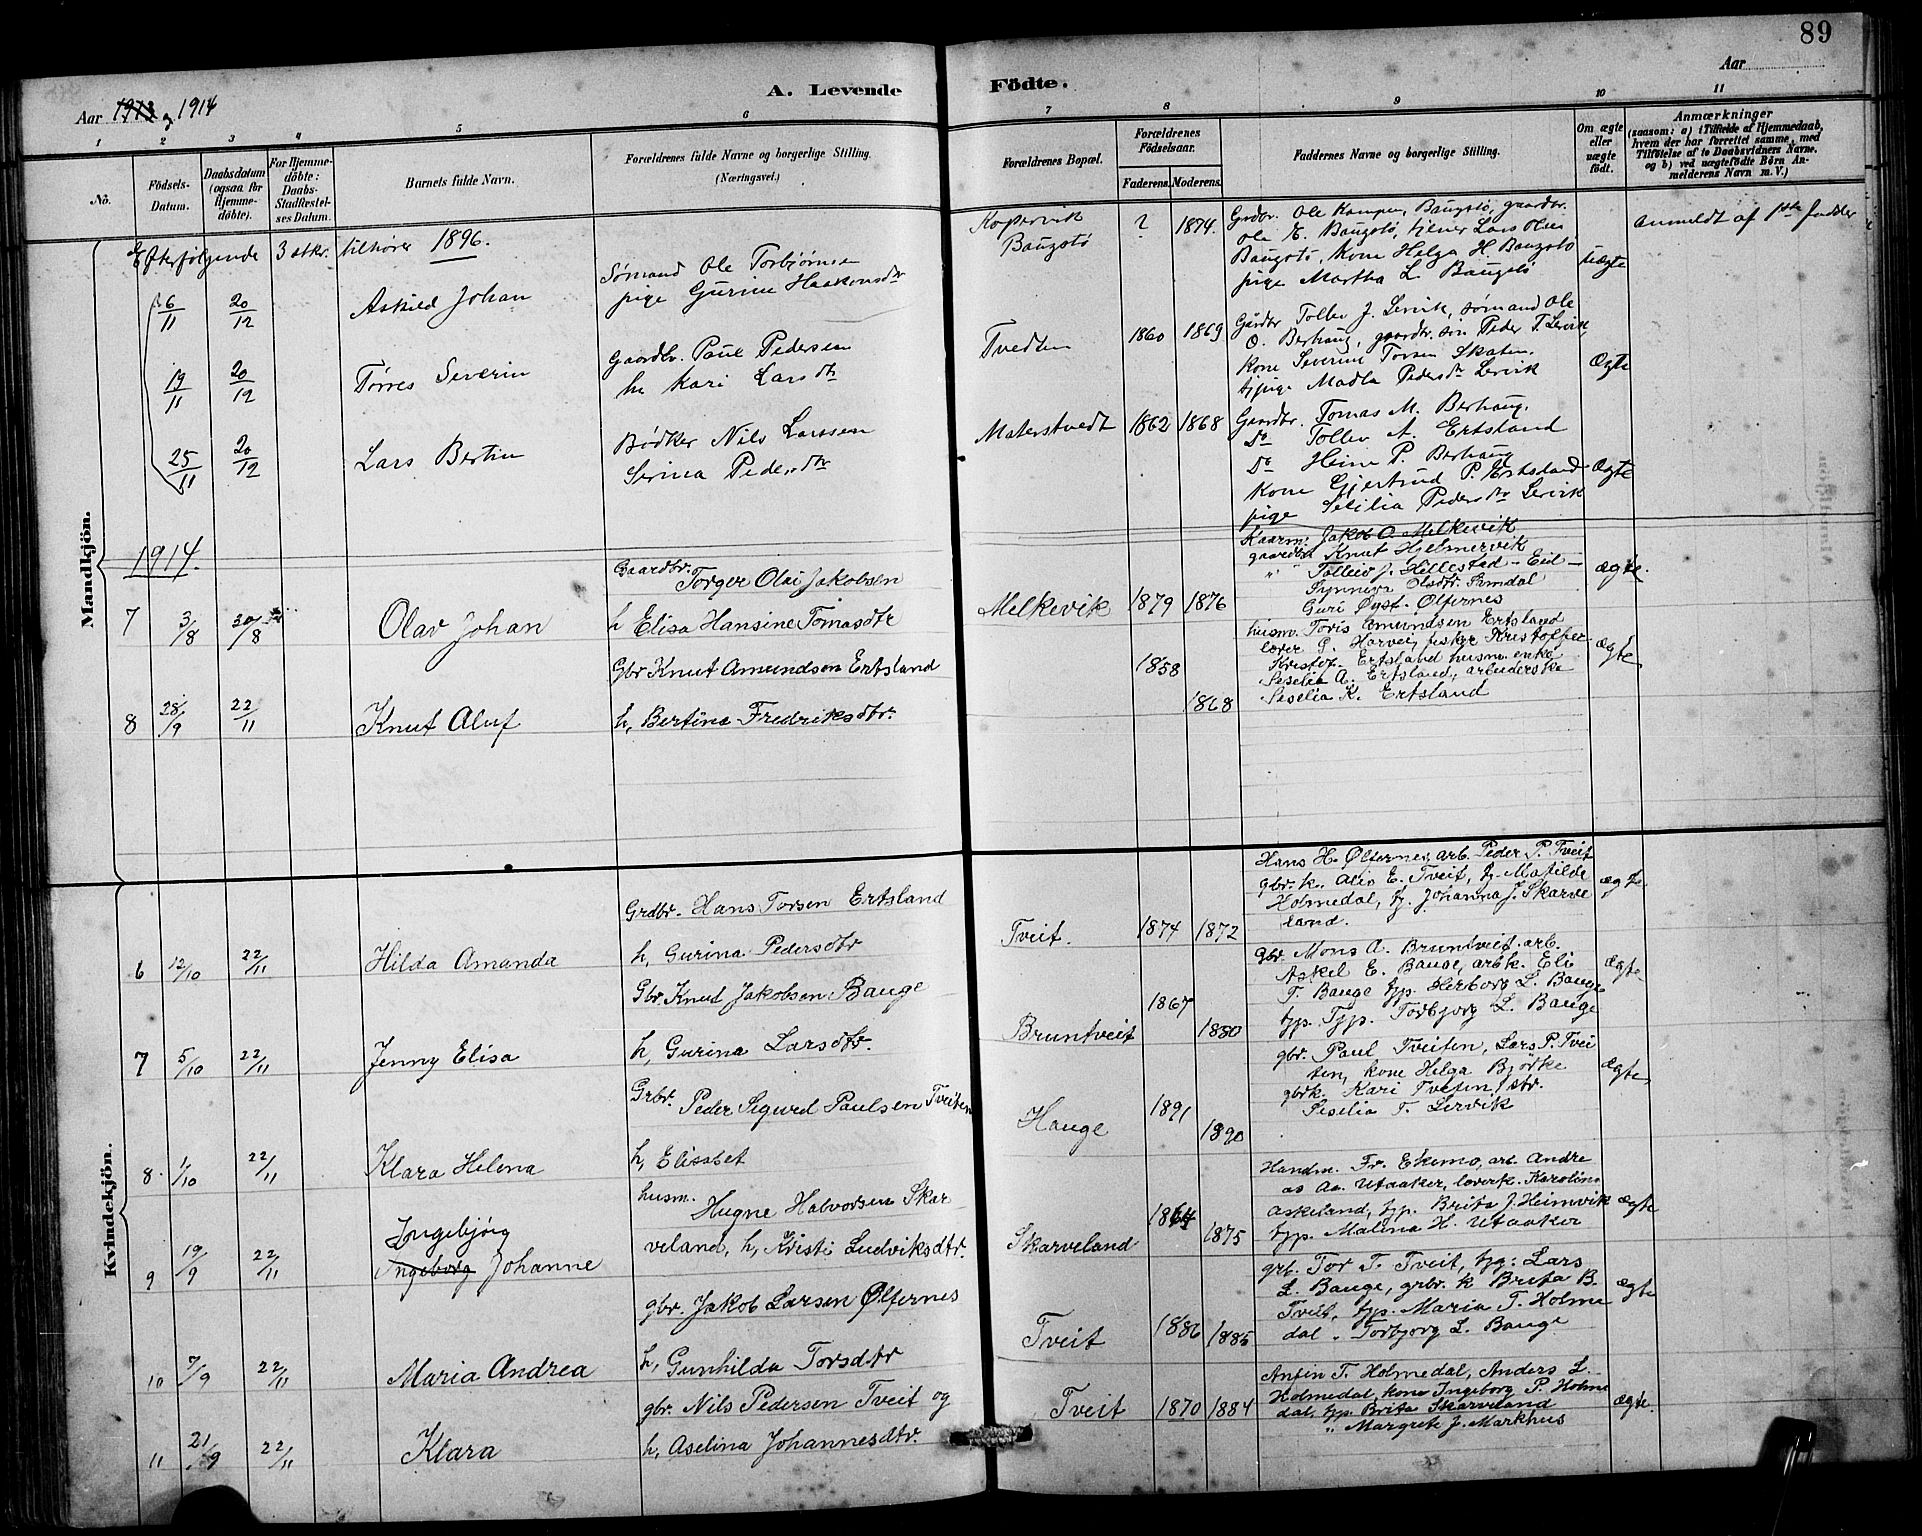 89
Aar 1913 og 1914
A. Levende
Födte.
Aar
1
2
3
4
5
6
7
8
9
10
11
No.
Födsels-Datum.
Daabsdatum (ogsaa for Hjemmedöbte).
For Hjemmedöbte: Daabs-Stadfestelses Datum.
Barnets fulde Navn.
Forældrenes fulde Navne og borgerlige Stilling. (Næringsvei.)
Forældrenes Bopæl.
Forældrenes Födselsaar.
Faderens.
Moderens.
Faddernes Navne og borgerlige Stilling.
Om ægte eller uægte födt.
Anmærkninger
(saasom: a) i Tilfælde af Hjemmedaab, hvem der har forrettet samme, med Tilföielse af to Daabsvidners Navne, og b) ved uægtefödte Börn Anmelderens Navn m. V.)
Mandkjön.
Efterfølgende 3 stkr. tilhører 1896.
6/11 20/12 Askild Johan
Sømand Ole Torbjørnsen
pige Gurine Haakonsdtr
Kopervik
Baugstø
? 1874.
Grdbr. Ole Kampen, Baugstø, gaardbr.
Ole E. Baugstø, tjener Lars Olsen
Baugstø, Kone Helga H. Baugstø
pige Martha L. Baugstø
uægte
Anmeldt af 1ste fadder
19/11 20/12 Tørres Severin
Gaardbr. Paul Pedersen
hu Kari Larsdtr
Tvedten 1860 1869
Gårdbr Tollev J. Lervik, sømand Ole
O. Berhaug, gaardbr. søn Peder T. Lervik,
kone Severine Torsen Skaten,
tjpige Madla Pedersdtr Lervik
Ægte
25/11 20/12 Lars Bertin
Bødker Nils Larssen
Serina Pedersdtr
Materstvedt 1862 1868
Gaardbr. Tomas M. Berhaug,
Do Tollev A. Ertsland
Do Heine P. Berhaug
kone Gjertrud P. Ertsland
pige Sesilia Pedersdtr Lervik
Ægte
1914.
7 3/8 30/8 Olav Johan
Gaardbr. Torger Olai Jakobsen
h Elisa Hansine Tomasdtr
Melkevik 1879 1876
Kaarm. Jakob O. Melkevik
gaardbr Knut Hjelmervik
" " Tolleiv J. Hillestad - Eid -
Synneva Olsdtr. Somdal
Guri Øyst. Ølfernes
ægte.
8 28/9 22/11 Knut Aluf
Gbr Knut Amundsen Ertsland
h, Bertine Fredriksdtr.
1858
1868
husm. Toris Emundsen Ertsland
lærer G. Harvei, fisker Kristoffer
Kristof. Ertsland husm. enke
Seselia A. Ertsland, arbeiderske
Seselia K. Ertsland
ægte
Kvindekjön.
6 12/10 22/11 Hilda Amanda
Grdbr. Hans Torsen Ertsland
h, Gurina Pedersdtr
Tveit. 1874 1872
Hans H. Ølfernes, arb. Peder P. Tveit
gbr. k. Alis E. Tveit, tj. Matilde
Holmedal, tj. Johanna J. Skarve
land.
ægte.
7 5/10 22/11 Jenny Elisa
Gbr. Knut Jakobsen Bauge
h, Gurina Larsdtr
Bruntveit 1867
1880
gbr. Mons A. Bruntveit arb.
Askel E. Bauge, arbk. Eli
T. Bauge tjp. Herborg L. Bauge
tjp. Tjp. Torbjorg L. Bauge
ægte
8 1/10 22/11 Klara Helena
Grbr. Peder Sigurd Paulsen Tveiten
h, Elisabet
Hauge 1891
1890
gbr. Paul Tveiten, Lars P. Tvei
ten, kone Helga Bjørke
gbrk. Kari Tveiten, dtr.
Seselia T. Lervik
ægte
9 19/9 22/11 Ingebjörg
Ingeborg Johanne
husm. Hugne Halvorsen Skar
veland, h, Kristi Ludviksdtr.
Skarveland 1864
1875
Handm. Fr. Ekemo, arb. Andre
as An. Utaaker, lærerk. Karoline
Askeland, tjp. Brita J. Heimvik
tjp. Malina H. Utaaker
ægte
10 7/9 22/11 Maria Andrea
gbr. Jakob Larsen Ølfernes
h, Gunhilda Torsdtr
Tveit 1886 1885
grb. Tor T. Tveit, tjg: Lars
L. Bauge, grbr. k Brita B.
Tveit, tjp. Maria T. Holme
dal " Torbjorg L. Bauge
ægte
11 21/9 22/11 Klara
gbr. Nils Pedersen Tveit og
h, Aselina Johannesdtr.
Tveit 1870 1884
Anfin T. Holmedal, Anders L.
Holmedal, kone Ingeborg P. Holme
dal, tjp. Brita Skarveland
" Margrete J. Markhus
ægte.